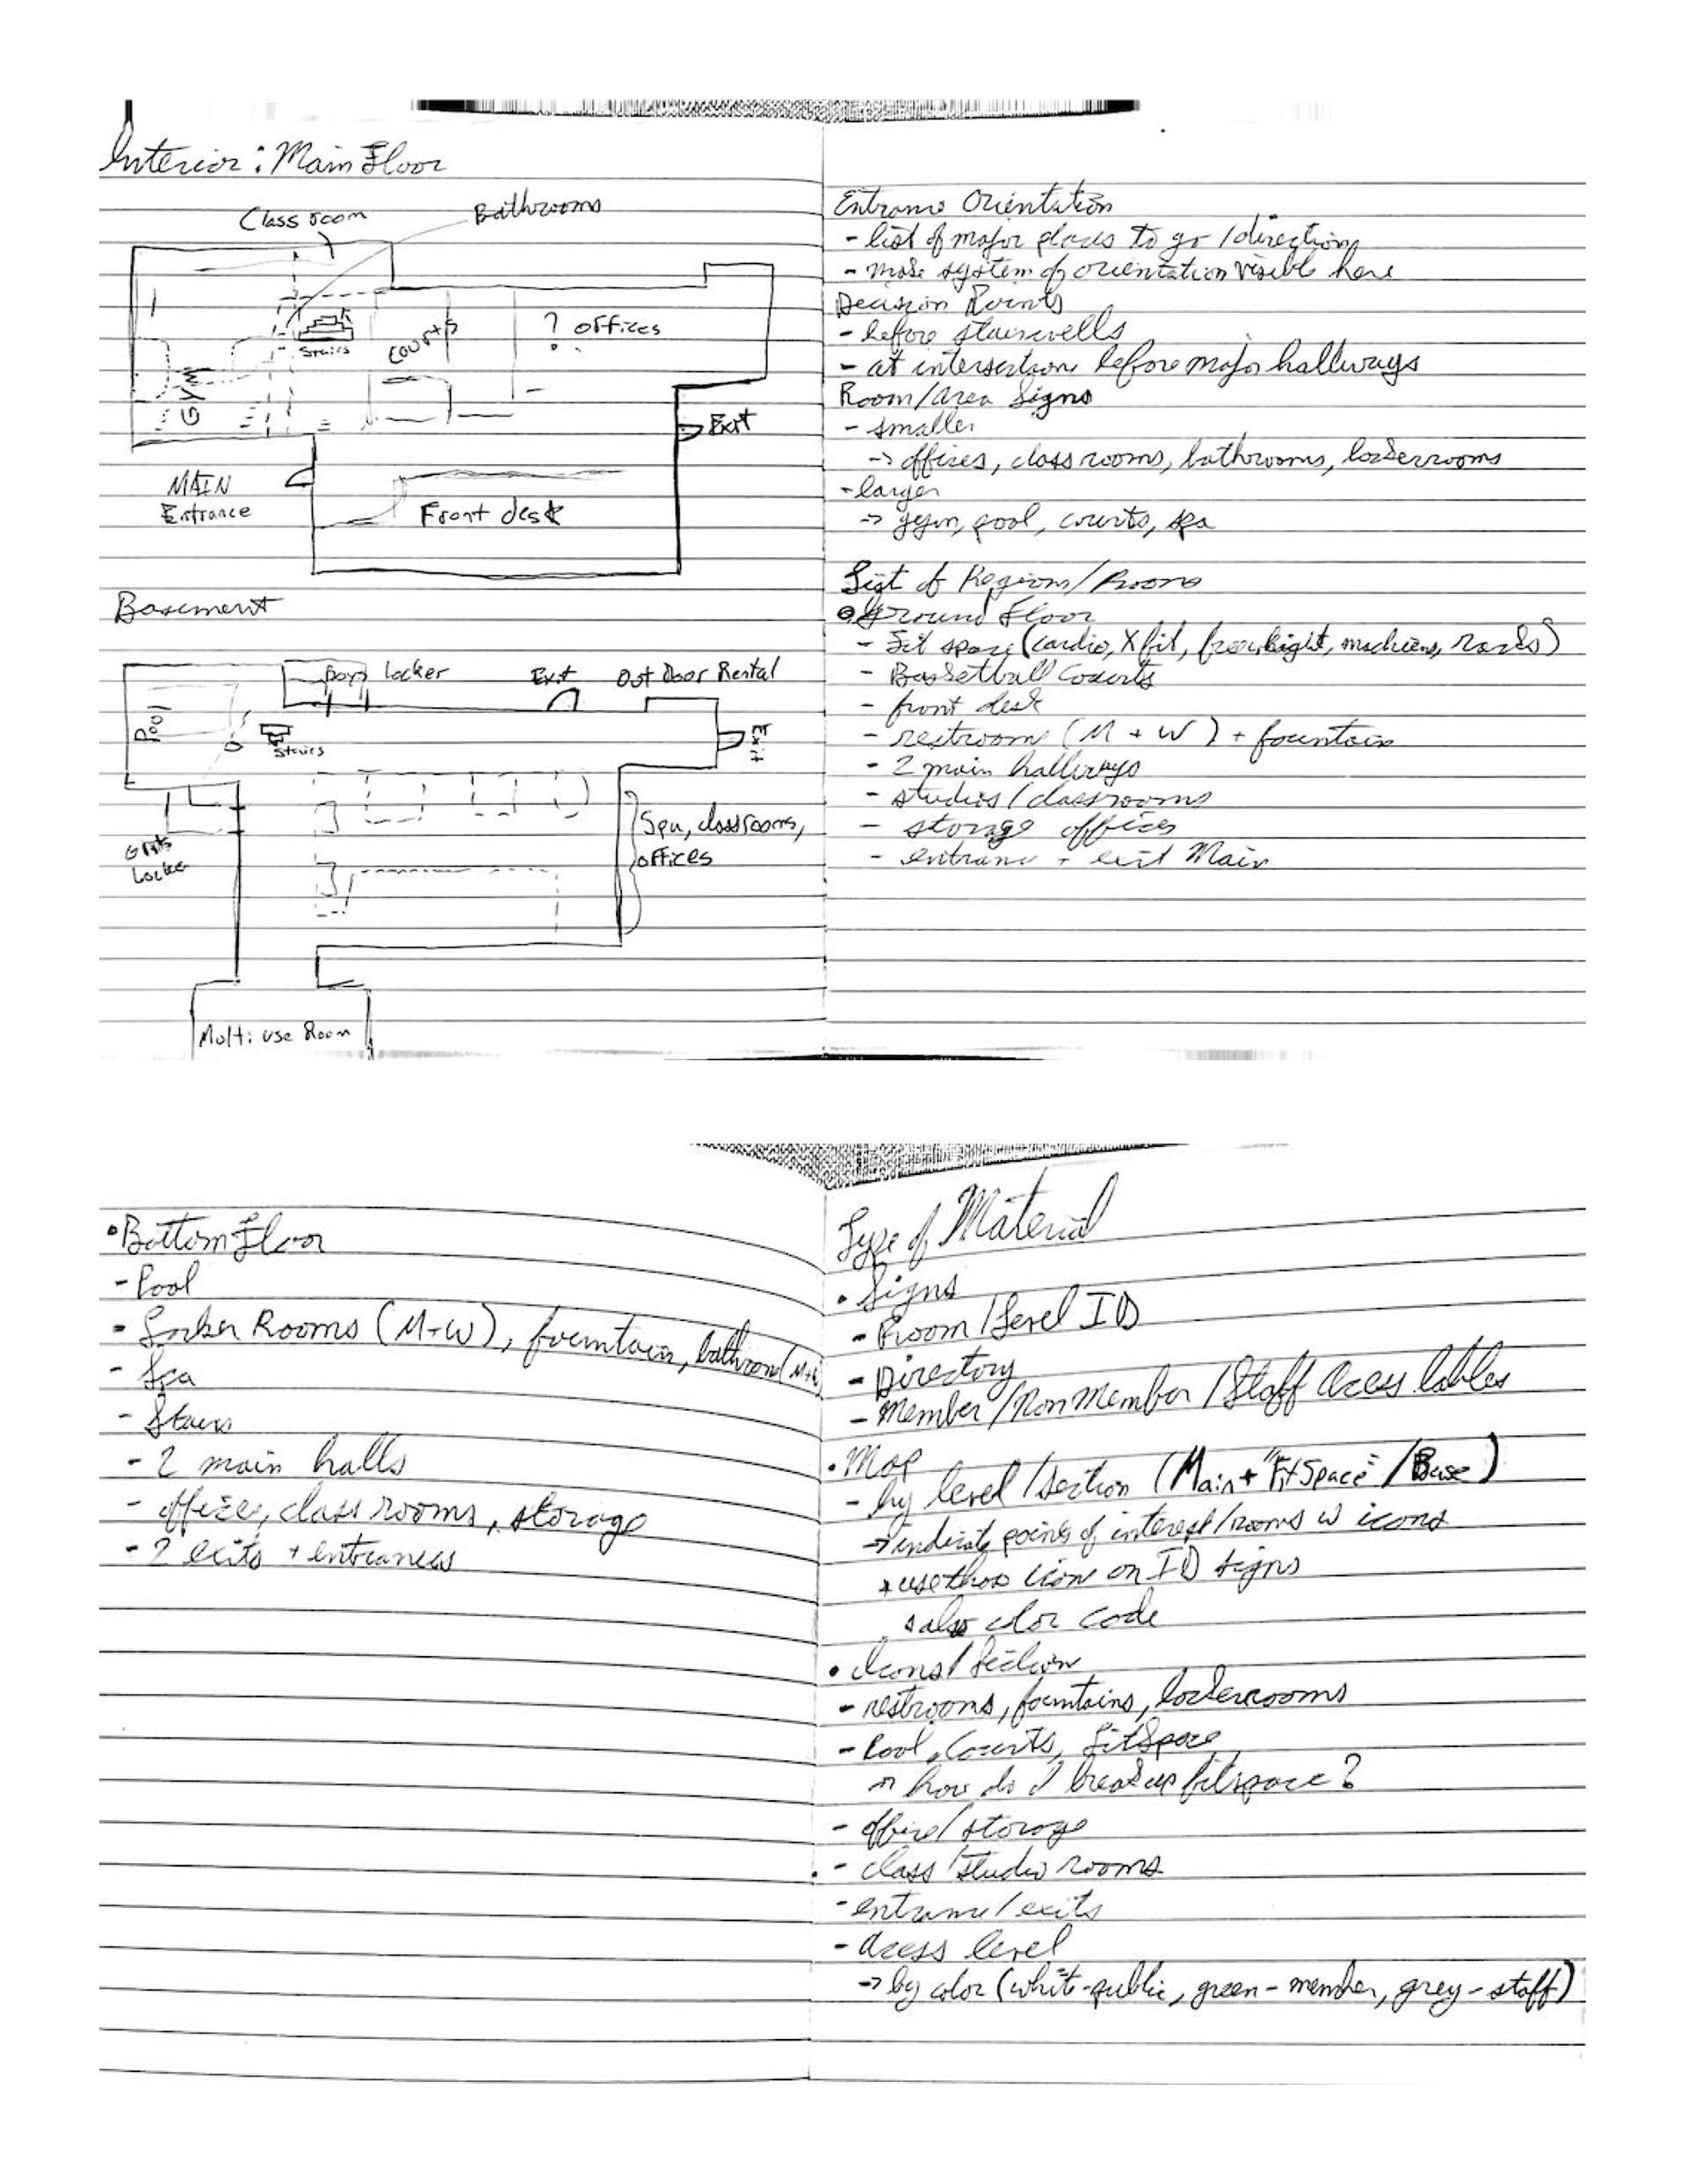 Interior: Main Floor
Classroom
Bathrooms
Stairs
Courts
? offices
GYM
Exit
MAIN
Entrance
Front desk
Basement
Boys Locker
Exit
Out Door Rental
Pool
Stairs
Exit
Girls
Locker
Spa, classrooms,
offices
Multi use Room
Entrance Orientation
- list of major places to go / directions
- make system of orientation visible here
Decision Points
- before stairwells
- at intersections before major hallways
Room/Area Signs
- smaller
-> offices, classrooms, bathrooms, lockerrooms
- larger
-> gym, pool, courts, spa
List of Regions/Rooms
Ground Floor
- Fit space (cardio, X fit, freeweight, machines, racks)
- Basketball Courts
- front desk
- restroom (M + W) + fountain
- 2 main hallways
- studios/classrooms
- storage offices
- entrance + exit Main
• Bottom Floor
- Pool
- Locker Rooms (M+W), fountain, bathroom (M+W)
- Spa
- Stairs
- 2 main halls
- office, class rooms, storage
- 2 exits + entrances
Type of Material
• Signs
- Room/Level ID
- Directory
- Member/Non Member/Staff Acess lables
• Map
- by level/section (Main + "FitSpace"/Base)
-> indicate points of interest/rooms w icons
* use those icons on ID signs
* also color code
• Icons/Section
- restrooms, fountains, lockerrooms
- Pool, Courts, FitSpace
-> how do I break up fitspace?
- office/storage
- class/studio rooms
- entrance/exits
- Acess level
-> by color (white-public, green-member, grey-staff)